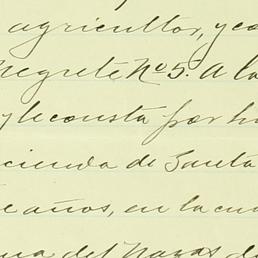 agricultor, y co
Negrete No 5. A la
y le consta por h
cienda de Santa
e años, en la cua
na del Nazas de